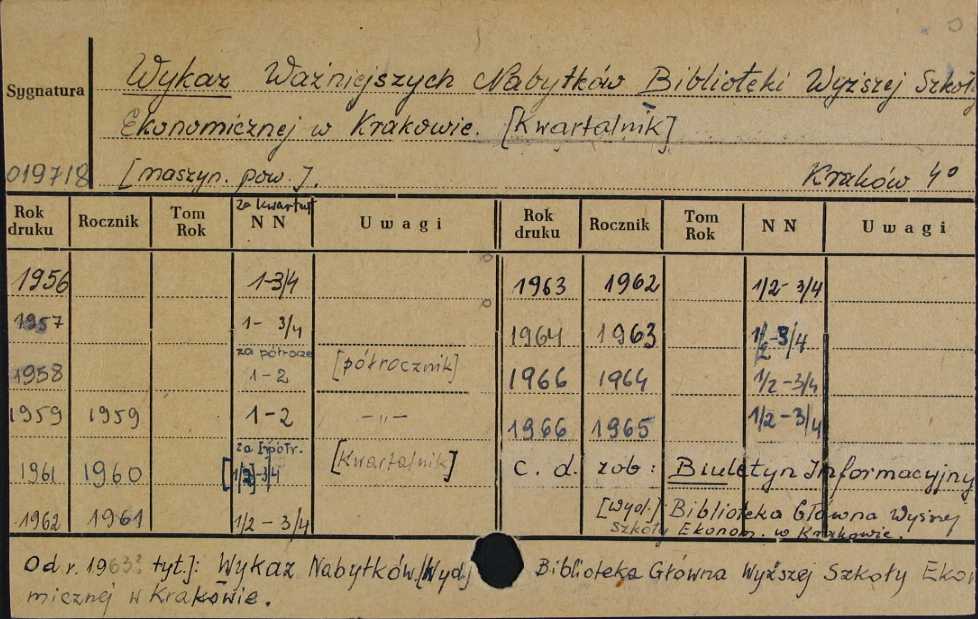 Sygnatura
Wykaz Ważniejszych Nabytków Biblioteki Wyższej Szkoły
Ekonomicznej w Krakowie. [Kwartalnik]
019718
[maszyn. pow.]. Kraków 4°
Rok druku Rocznik Tom Rok za kwartał NN Uwagi Rok druku Rocznik Tom Rok NN Uwagi
1956 1-3/4 1963 1962 1/2-3/4
1957 1- 3/4 1964 1963 1/2-3/4
1958 za półrocze 1-2 [półrocznik] 1966 1964 1/2-3/4
1959 1959 1-2 -„- 1966 1965 1/2-3/4
1961 1960 za I półr. [1/2]-3/4 [Kwartalnik] c. d. zob: Biuletyn Informacyjny
[Wyd.] Biblioteka Główna Wyższej
1962 1961 1/2 - 3/4 Szkoły Ekonom. w Krakowie.
Od r. 1963: tyt.]: Wykaz Nabytków. [Wyd.] Biblioteka Główna Wyższej Szkoły Ekono
micznej w Krakowie.